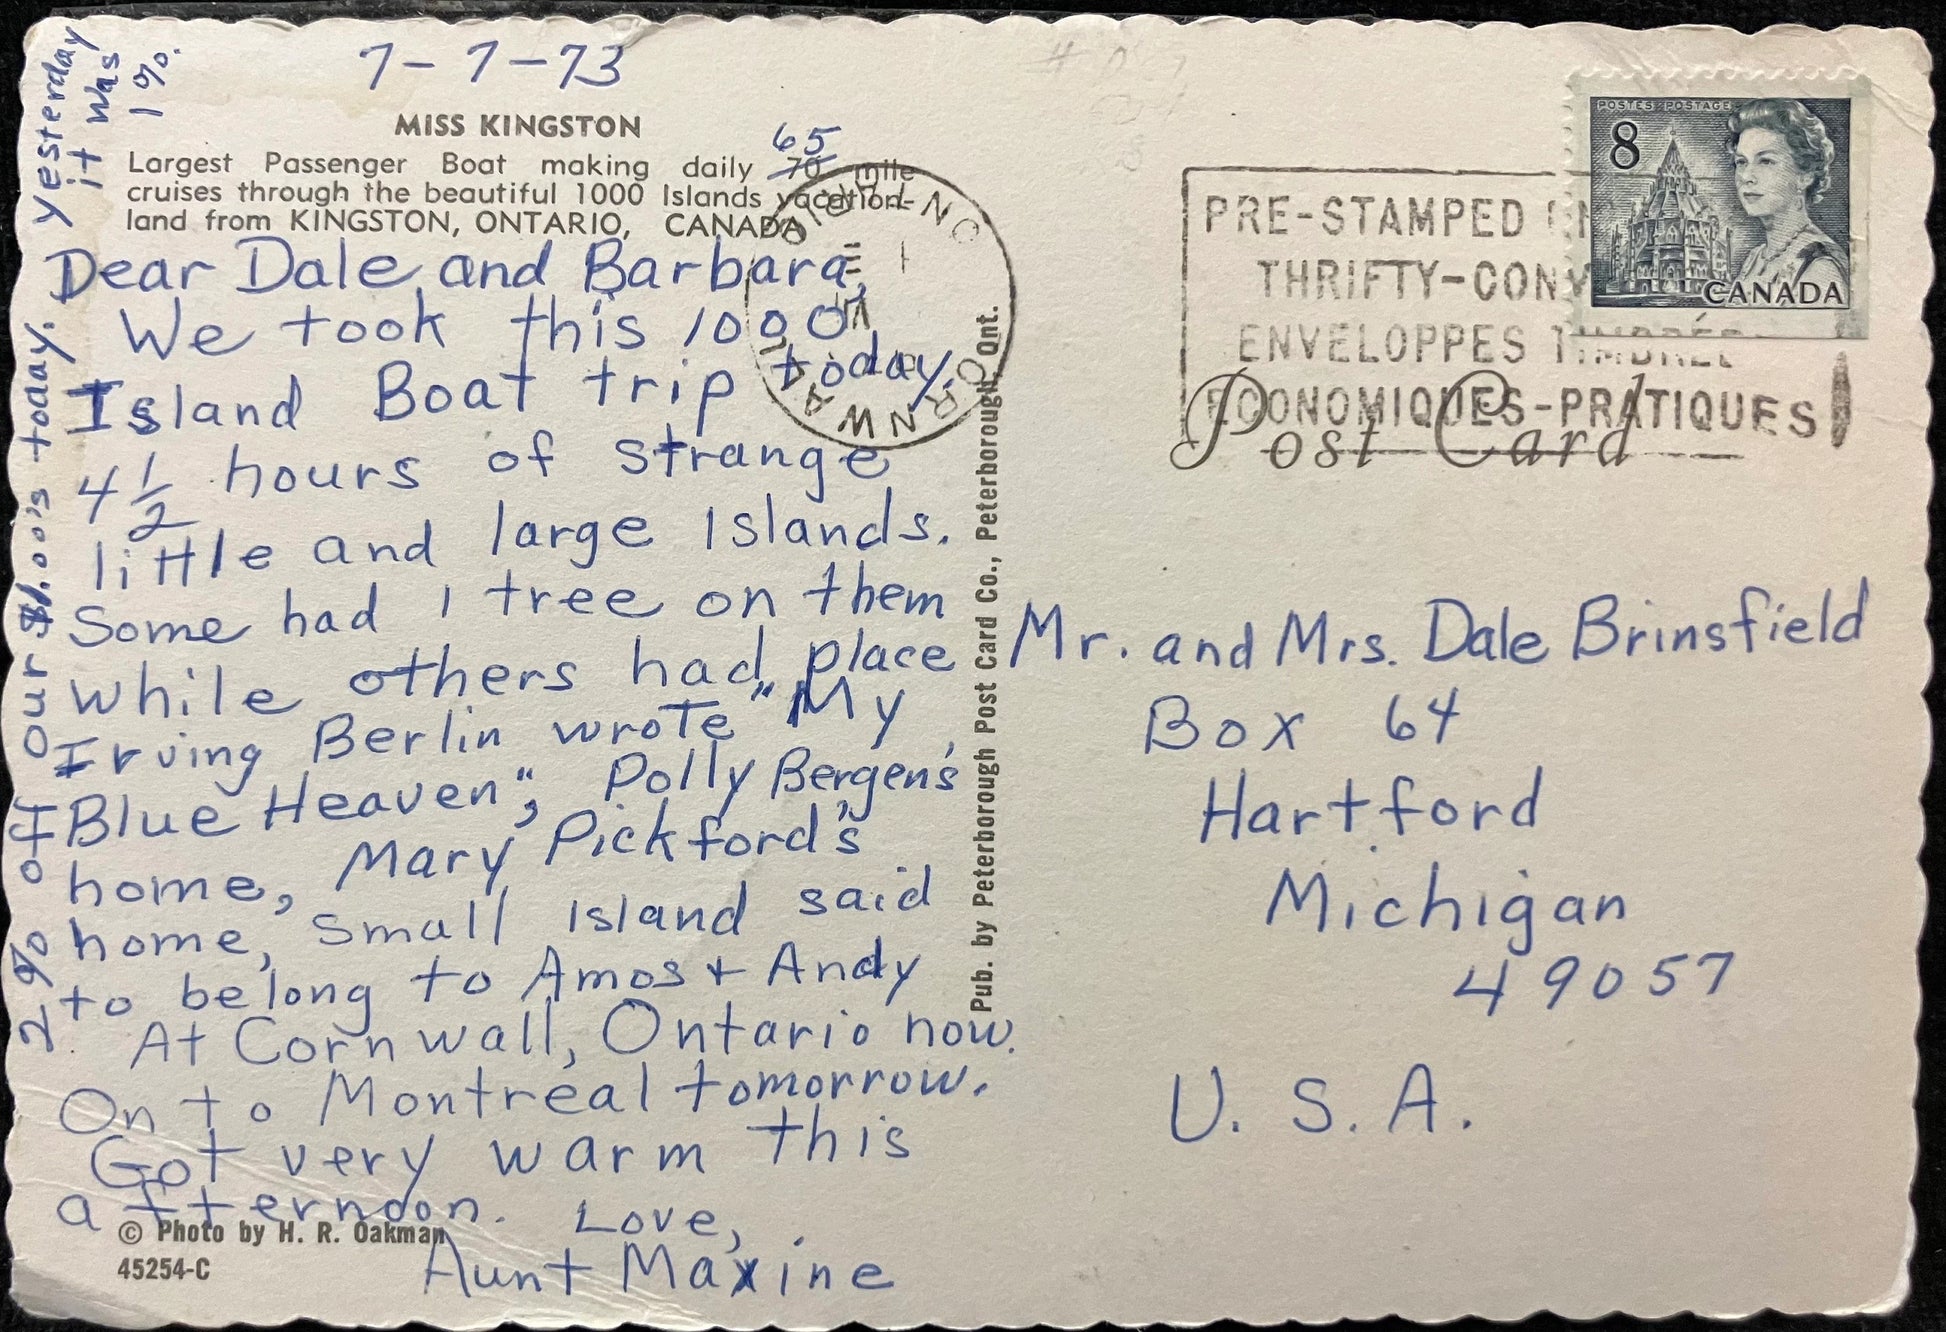 7-7-73
MISS KINGSTON
65
Largest Passenger Boat making daily 70 mile
cruises through the beautiful 1000 Islands vacation-
land from KINGSTON, ONTARIO, CANADA
Dear Dale and Barbara,
We took this 1000
Island Boat trip today.
4 1/2 hours of strange
little and large Islands.
Some had 1 tree on them
while others had place
Irving Berlin wrote "My
Blue Heaven", Polly Bergen's
home, Mary Pickford's
home, small island said
to belong to Amos + Andy
At Cornwall, Ontario now.
On to Montreal tomorrow.
Got very warm this
afternoon. Love,
Aunt Maxine
2% off our $1.00's today. yesterday
it was
1%.
© Photo by H. R. Oakman
45254-C
Pub. by Peterborough Post Card Co., Peterborough, Ont.
CORNWALL
PRE-STAMPED
THRIFTY-CONV
ENVELOPPES TIMBRÉE
ECONOMIQUES-PRATIQUES
POSTES POSTAGE
8
CANADA
Post Card
Mr. and Mrs. Dale Brinsfield
Box 64
Hartford
Michigan
49057
U.S.A.